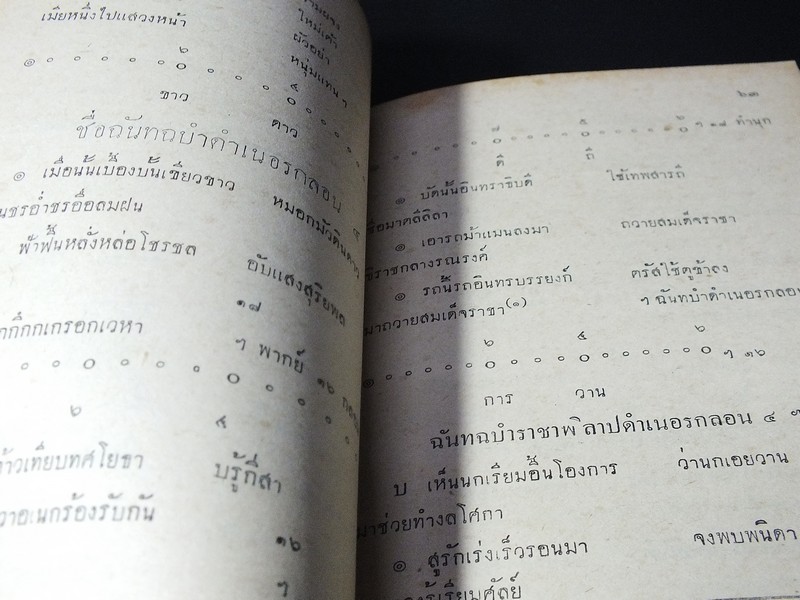 เมียหนึ่งไปแสวงหนำ
ผัวอย่า
หนุ่มแทน ๆ
ขาว
ดาว
ชื่อฉันทฉบำดำเนอรกลอน ๔
๏ เมื่อนั้นเบื้องบั้นเขียวขาว
หมอกมัวดินดาว
ฟ้าฟื้นหลั่งหล่อโชรชล
อับแสงสุริยพล
๑๗
ๆ พากย์ ๑๒
๖
๔
บรู้กี่สา
วาอเนกร้องรับกัน
๑๖
ๆ
๒๓
๗ ๕ ๖ ๆ ๑๘ ทำนุก
ดี ถี
๏ บัดนั้นอินทราธิบดี ใช้เทพสารถี
ชื่อมาตลีลิลา
๏ เอารถม้าแมนลงมา ถวายสมเด็จราชา
ธิราชกลางรณรงค์
๏ รถนี้รถอินทรบรรยงก์ ตรัสใช้ตูข้าลง
มาถวายสมเด็จราชา(๑) ๆ ฉันทบำดำเนอรกลอน
๖ ๔ ๖
ๆ ๑๒
การ วาน
ฉันทฉบำราชาพิลาปดำเนอรกลอน ๔ ๓
บ เห็นนกเรียมอื้นโองการ ว่านกเอยวาน
มาช่วยทำงลโศกา
๏ สูรักเร่งเร็วรอนมา จงพบพนิดา
รู้เรียมศัลย์